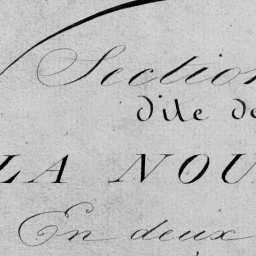 Section
dite de
LA NOU
En deux